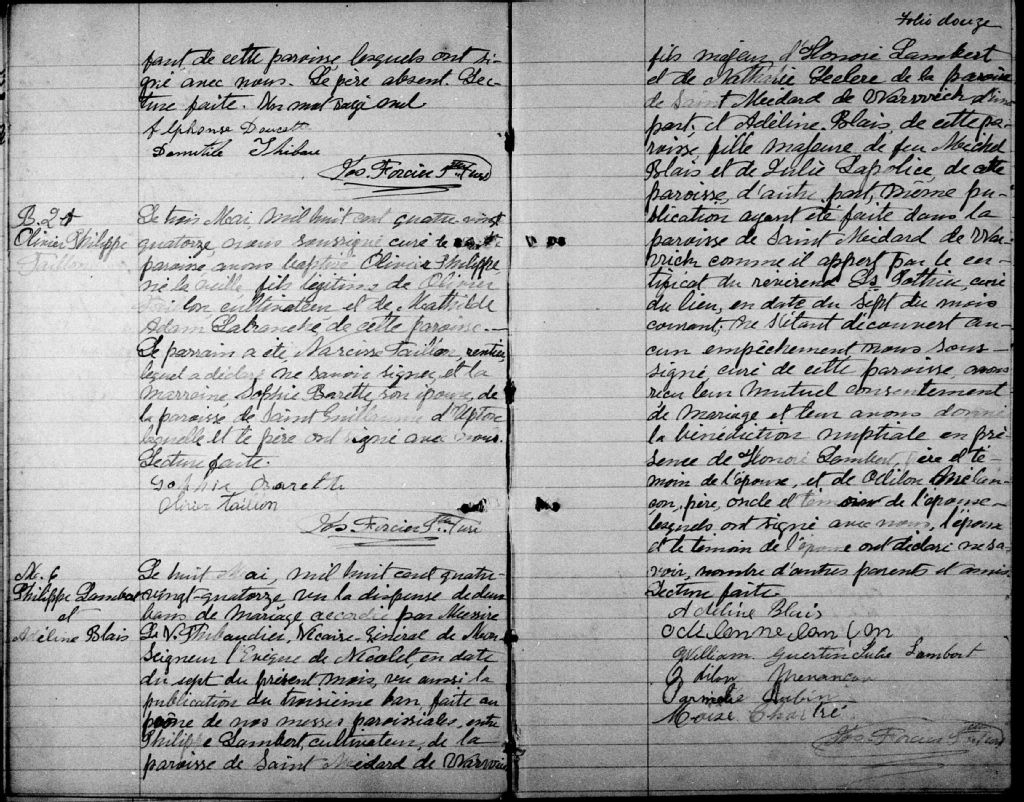 fant de cette paroisse lesquels ont si-
gné avec nous. Le père absent. Lec-
ture faite. Un mot rayé nul
Alphonse Doucette
Domitile Thibau
Jos. Forcier Ptre Curé
B. 25
Olivier Philippe
Taillon
Le trois Mai, mil huit cent quatre vingt
quatorze, nous soussigné curé de
paroisse, avons baptisé Olivier Philippe
né la veille fils légitime de Olivier
Taillon cultivateur et de Mathilde
Adam Labranche de cette paroisse.
Le parrain a été Narcisse Taillon, rentier,
lequel a déclaré ne savoir signer, et la
marraine Sophie Barette, son épouse, de
la paroisse de Saint Guillaume d'Upton
laquelle et le père ont signé avec nous.
Lecture faite.
Sophie Barette
Olivier Taillon
Jos. Forcier Ptre Curé
M. 6
Philippe Lambert
et
Adéline Blais
Le huit Mai, mil huit cent quatre-
vingt-quatorze vu la dispense de deux
bans de mariage accordée par Messire
Le V. Thibaudier, Vicaire-Général de Mon
Seigneur l'Evêque de Nicolet, en date
du sept du présent mois, vu aussi la
publication du troisième ban, faite au
prône de nos messes paroissiales, entre
Philippe Lambert, cultivateur, de la
paroisse de Saint Médard de Warwick
Folio douze
fils majeur d'Honoré Lambert
et de Nathalie Leclerc de la paroisse
de Saint Médard de Warwick d'une
part; et Adéline Blais, de cette pa-
roisse, fille majeure de feu Michel
Blais et de Julie Lapolice, de cette
paroisse, d'autre part, même pu-
blication ayant été faite dans la
paroisse de Saint Médard de War-
wick comme il appert par le cer-
tificat du révérend Ls Pothier, curé
du lieu, en date du sept du mois
courant; ne s'étant découvert au-
cun empêchement nous sous-
signé curé de cette paroisse, avons
reçu leur mutuel consentement
de mariage et leur avons donné
la bénédiction nuptiale en pré-
sence de Honoré Lambert, père et té-
moin de l'époux, et de Odilon
père, oncle et témoin de l'épouse
lesquels ont signé avec nous, l'époux
et le témoin de l'épouse ont déclaré ne sa-
voir, nombre d'autres parents et amis
Lecture faite
Adéline Blais
William Guertin Julie Lambert
Odilon
Aubin
Moise Chartré
Jos. Forcier Ptre Curé